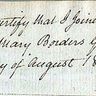 certify that I joined
Mary Borders
y of August 18